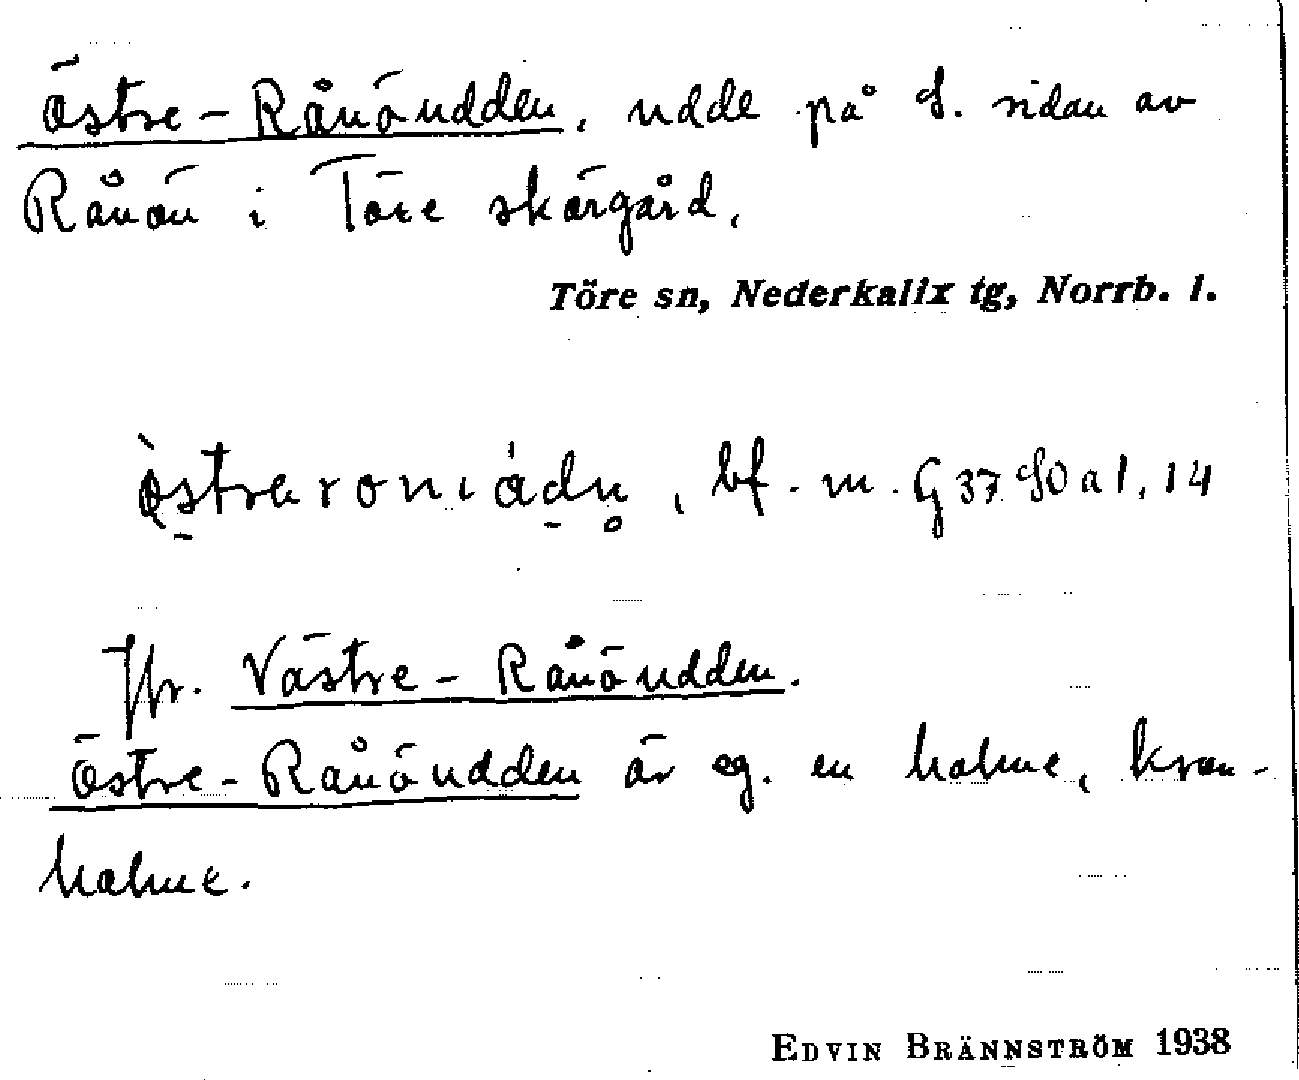 Östre-Rånöudden, udde på S. sidan av
Rånön i Töre skärgård.
Töre sn, Nederkalix tg, Norrb. l.
bf. m. G 37 SO a 1, 14
Jfr. Västre-Rånöudden.
Östre-Rånöudden är eg. en holme, kron-
holme.
EDVIN BRÄNNSTRÖM 1938